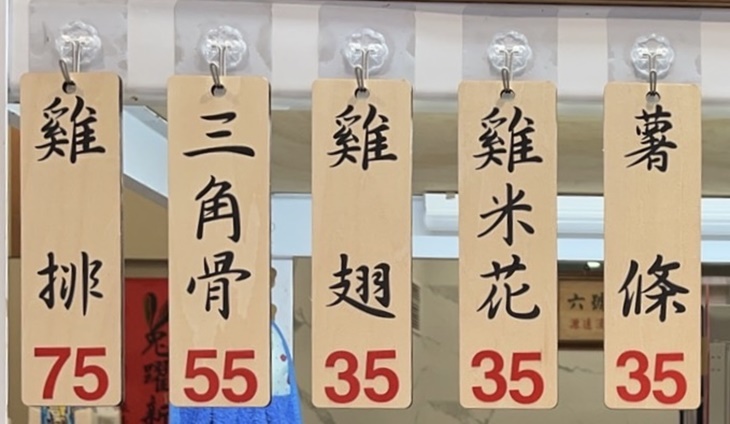 雞排
75
三角骨
55
雞翅
35
雞米花
35
薯條
35
六